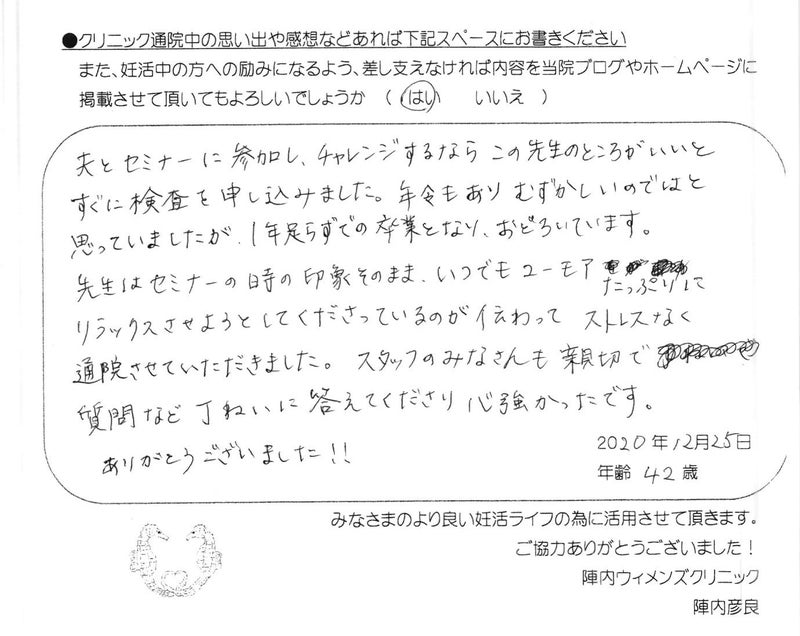 ●クリニック通院中の思い出や感想などあれば下記スペースにお書きください
また、妊活中の方への励みになるよう、差し支えなければ内容を当院ブログやホームページに
掲載させて頂いてもよろしいでしょうか （ はい いいえ ）
夫とセミナーに参加し、チャレンジするなら この先生のところがいいと
すぐに検査を申し込みました。年令もあり むずかしいのではと
思っていましたが、1年足らずでの卒業となり、おどろいています。
先生はセミナーの時の印象そのまま、いつでもユーモア たっぷりに
リラックスさせようとしてくださっているのが伝わって ストレスなく
通院させていただきました。 スタッフのみなさんも 親切で
質問など 丁ねいに 答えてくださり 心強かったです。
ありがとうございました!!
2020年12月25日
年齢 42歳
みなさまのより良い妊活ライフの為に活用させて頂きます。
ご協力ありがとうございました！
陣内ウィメンズクリニック
陣内彦良